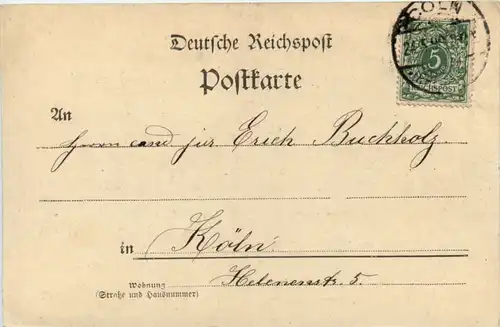 CÖLN
5
REICHSPOST
Deutsche Reichspost
Postkarte
An
Herrn cand jur Erich Buchholz.
in Köln
Wohnung Helenenstr. 5.
(Straße und Hausnummer)